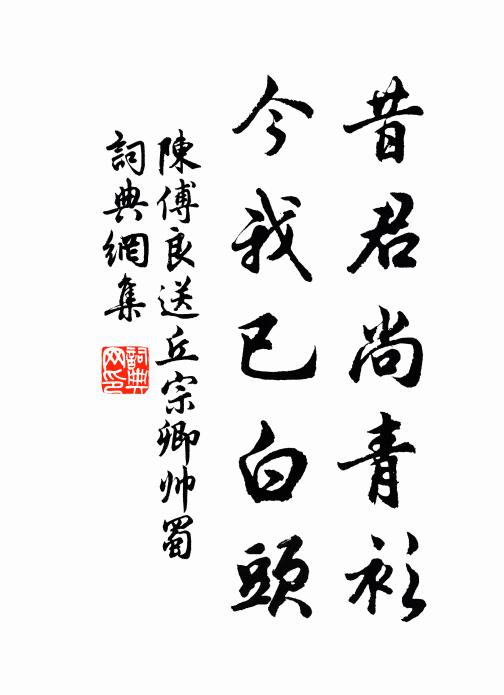 昔君尚青衫
今我已白頭
陳傅良送丘宗卿帅蜀
詞典網集
詞典
网印